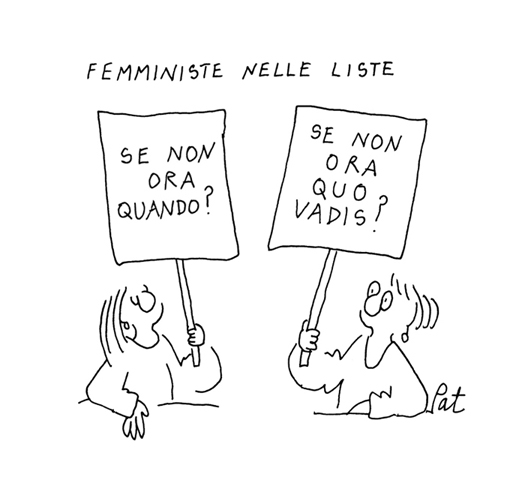 FEMMINISTE NELLE LISTE
SE NON
ORA
QUANDO?
SE NON
ORA
QUO
VADIS?
Pat